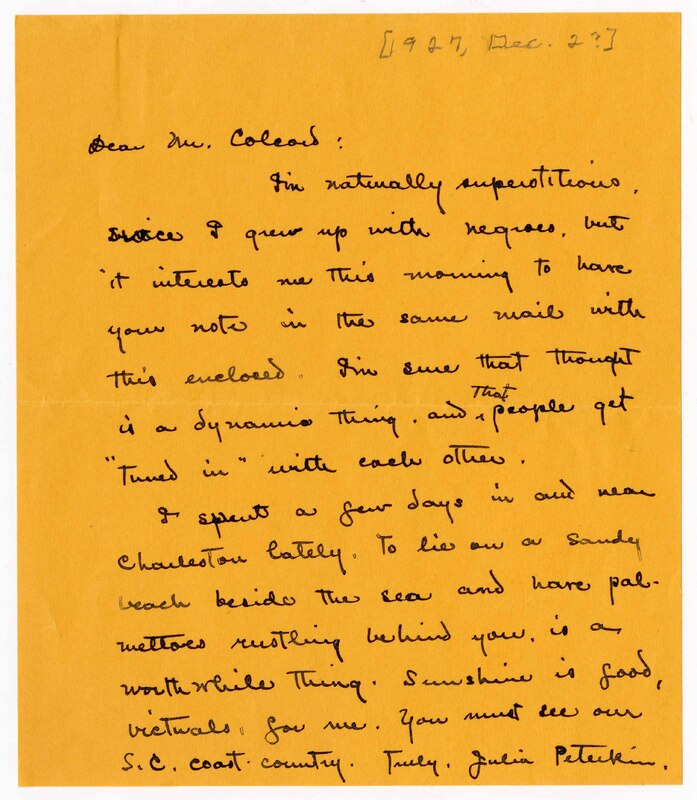 [1927, Dec. 2?]
Dear Mr. Colcord:
I'm naturally superstitious,
since I grew up with negroes, but
it interests me this morning to have
your note in the same mail with
this enclosed. I'm sure that thought
is a dynamic thing, and that people get
"tuned in" with each other.
I spent a few days in and near
Charleston lately. To lie on a sandy
beach beside the sea and have pal-
mettoes rustling behind you, is a
worthwhile thing. Sunshine is good,
victuals, for me. You must see our
S.C. coast-country. Truly, Julia Peterkin.